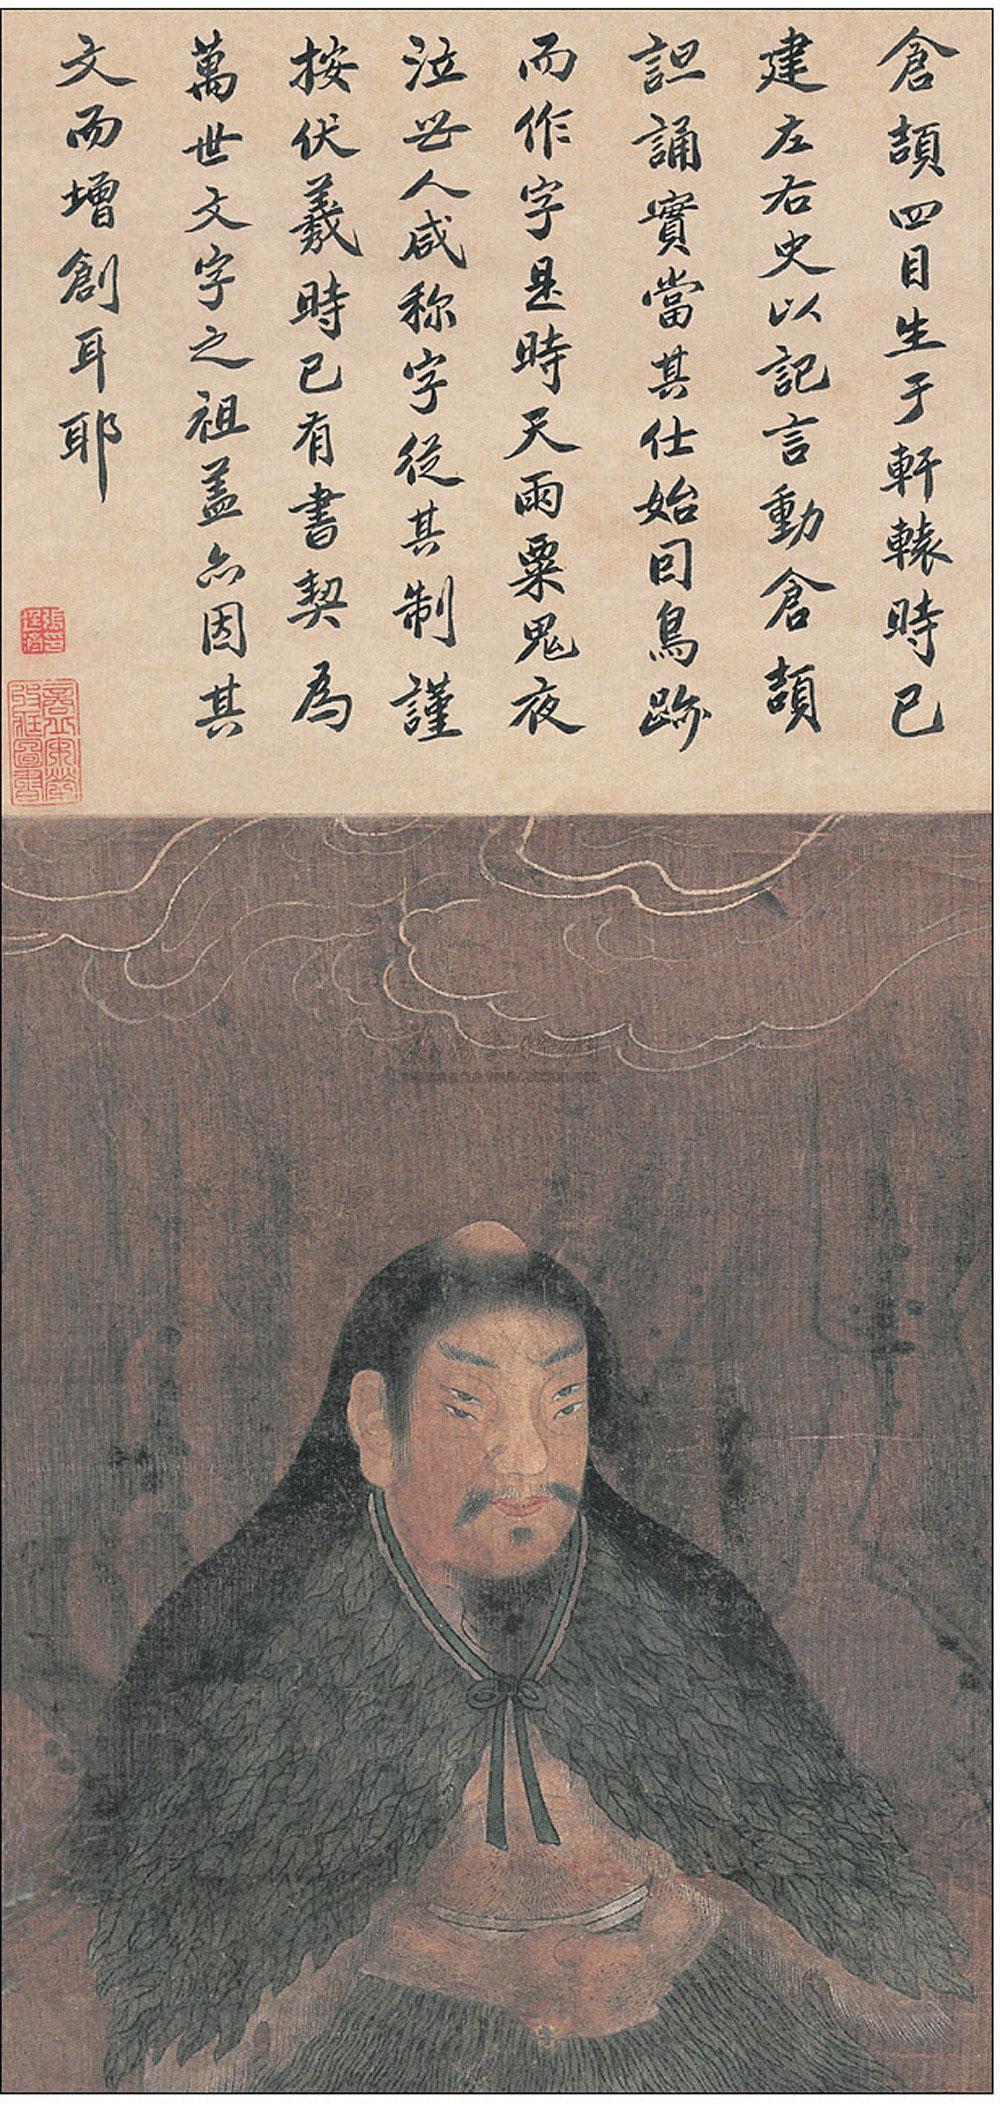 倉頡四目生于軒轅時已
建左右史以記言動倉頡
詚誦實當其仕始因鳥跡
而作字是時天雨粟鬼夜
泣世人咸称字從其制謹
按伏羲時已有書契為
萬世文字之祖盖亦因其
文而增創耳耶